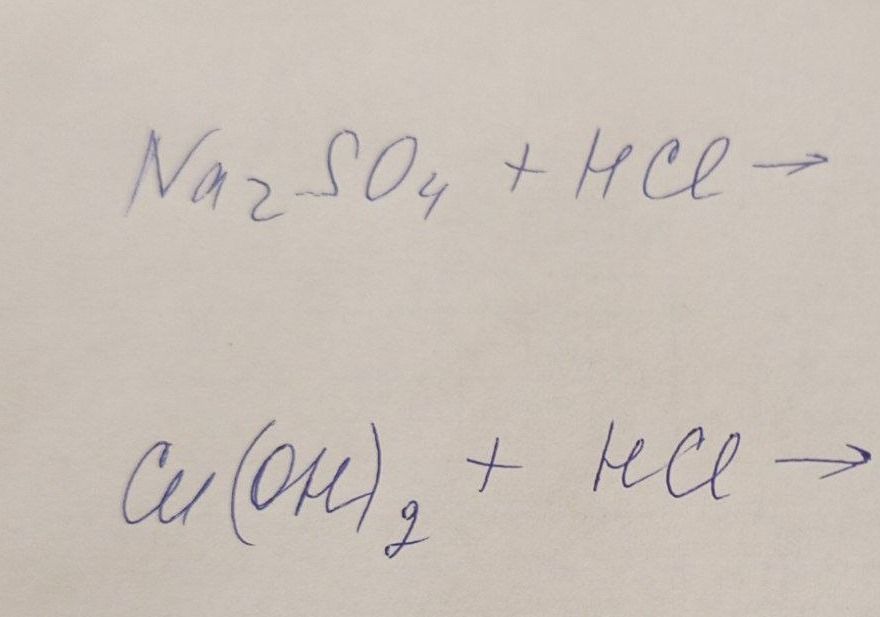 Na₂SO₄ + HCl →
Cu(OH)₂ + HCl →